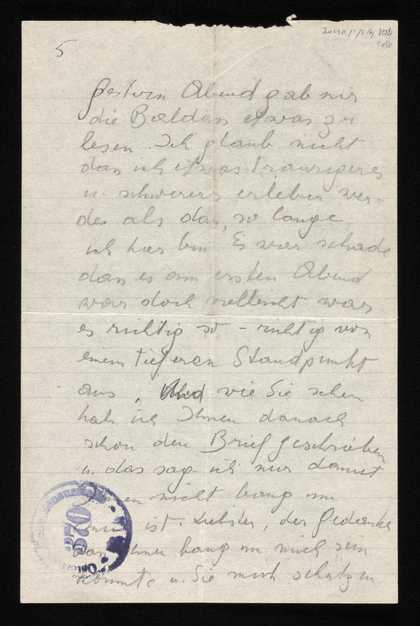 5
Gestern Abend gab mir
die Baldass etwas zu
lesen. Ich glaub nicht
dass ich etwas traurigeres
u. schwereres erleben wer-
de als das, so lange
ich hier bin. Es war schade
dass es am ersten Abend
war doch vielleicht war
es richtig so - richtig von
einem tieferen Standpunkt
aus. Und wie Sie sehen
hab ich Ihnen danach
schon den Brief geschrieben
u. das sag ich nur damit
nicht bang um
ist. Liebster, der Gedanke
Ihnen bang um mich sein
könnte u. Sie mich schützen
028